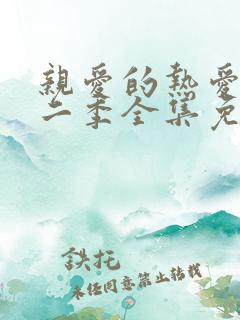 親愛的熱愛
二季全集免
鉄托
未任同意禁止转载